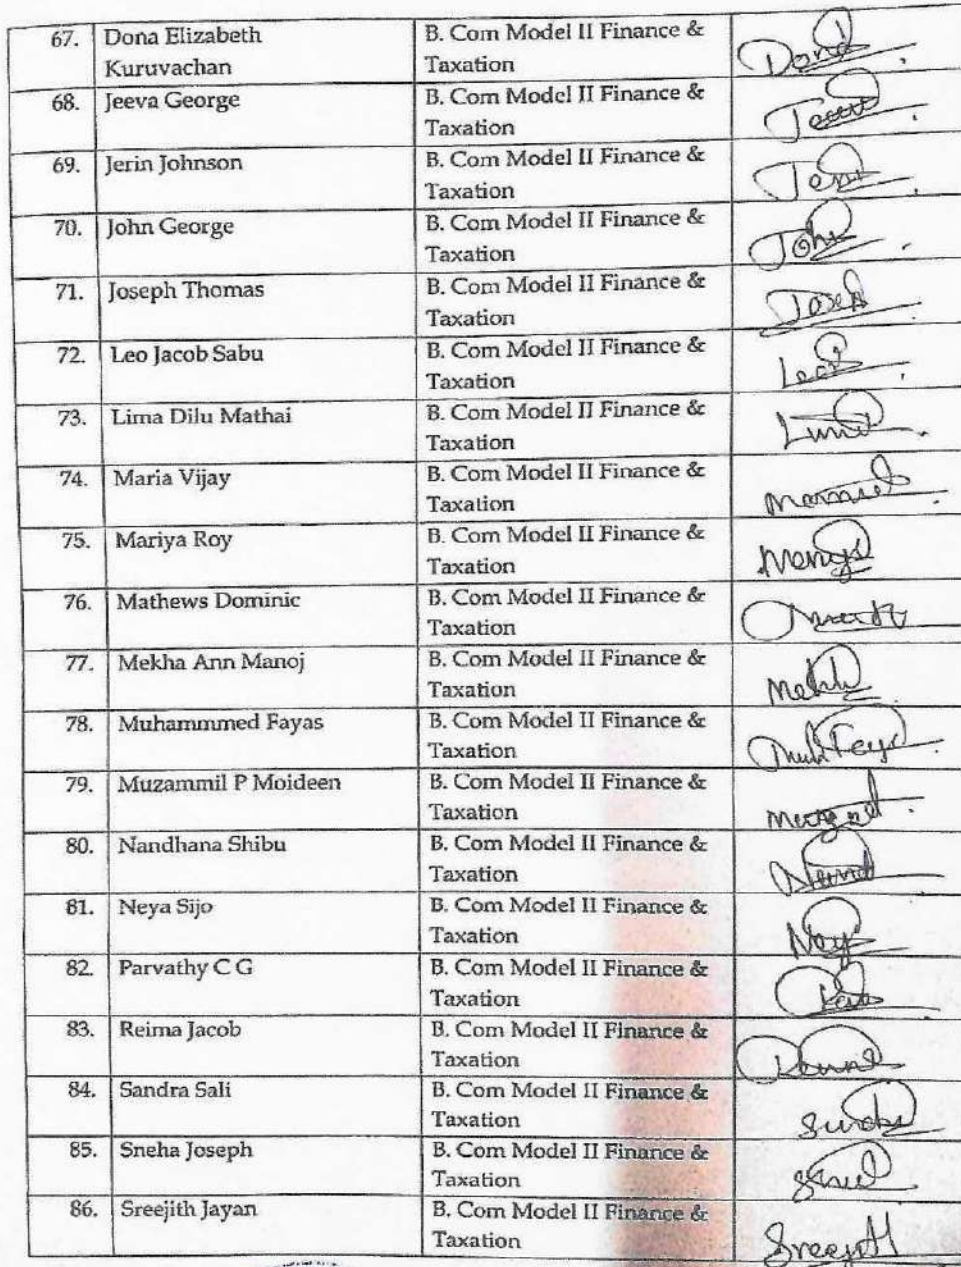 67. Dona Elizabeth B. Com Model II Finance &
Kuruvachan Taxation Dona
68. Jeeva George B. Com Model II Finance &
Taxation
69. Jerin Johnson B. Com Model II Finance &
Taxation
70. John George B. Com Model II Finance &
Taxation John
71. Joseph Thomas B. Com Model II Finance &
Taxation
72. Leo Jacob Sabu B. Com Model II Finance &
Taxation
73. Lima Dilu Mathai B. Com Model II Finance &
Taxation
74. Maria Vijay B. Com Model II Finance &
Taxation
75. Mariya Roy B. Com Model II Finance &
Taxation
76. Mathews Dominic B. Com Model II Finance &
Taxation
77. Mekha Ann Manoj B. Com Model II Finance &
Taxation
78. Muhammmed Fayas B. Com Model II Finance &
Taxation
79. Muzammil P Moideen B. Com Model II Finance &
Taxation
80. Nandhana Shibu B. Com Model II Finance &
Taxation
81. Neya Sijo B. Com Model II Finance &
Taxation
82. Parvathy C G B. Com Model II Finance &
Taxation
83. Reima Jacob B. Com Model II Finance &
Taxation
84. Sandra Sali B. Com Model II Finance &
Taxation
85. Sneha Joseph B. Com Model II Finance &
Taxation
86. Sreejith Jayan B. Com Model II Finance &
Taxation